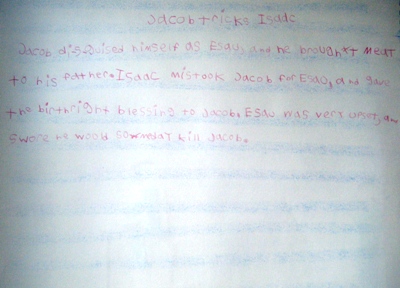 Jacob tricks Isaac
Jacob disguised himself as Esau, and he brought meat
to his father. Isaac mistook Jacob for Esau, and gave
the birthright blessing to Jacob. Esau was very upset, and
swore he would somedat kill Jacob.